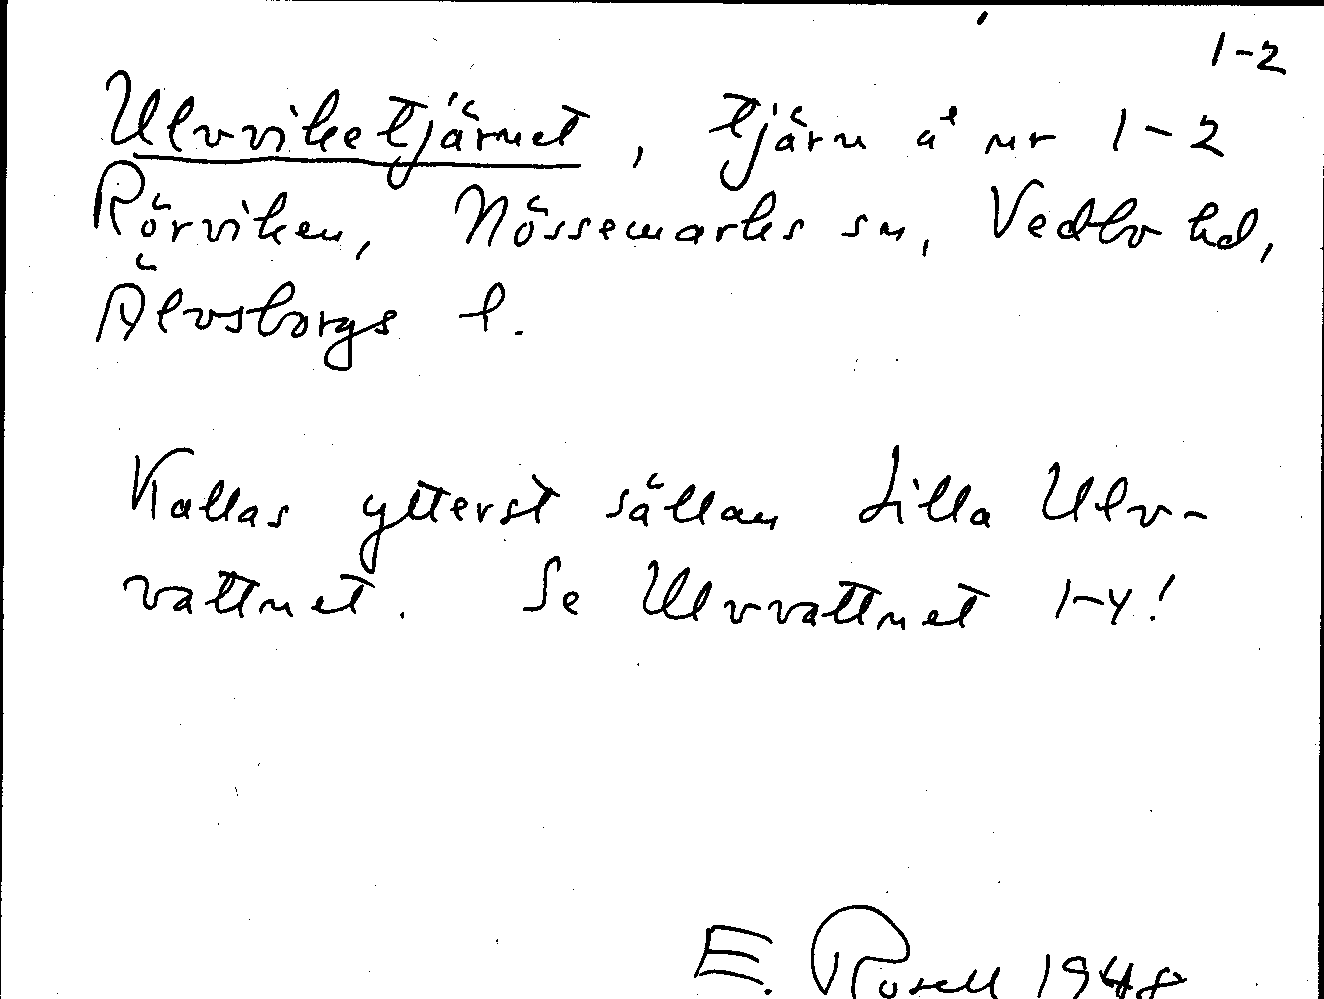 1-2
Ulvviketjärnet, tjärn å nr 1-2
Rörviken, Nössemarks sn, Vedbo hd,
Älvsborgs l.
Kallas ytterst sällan Lilla Ulv-
vattnet. Se Ulvvattnet 1-4!
E. Rosell 1948